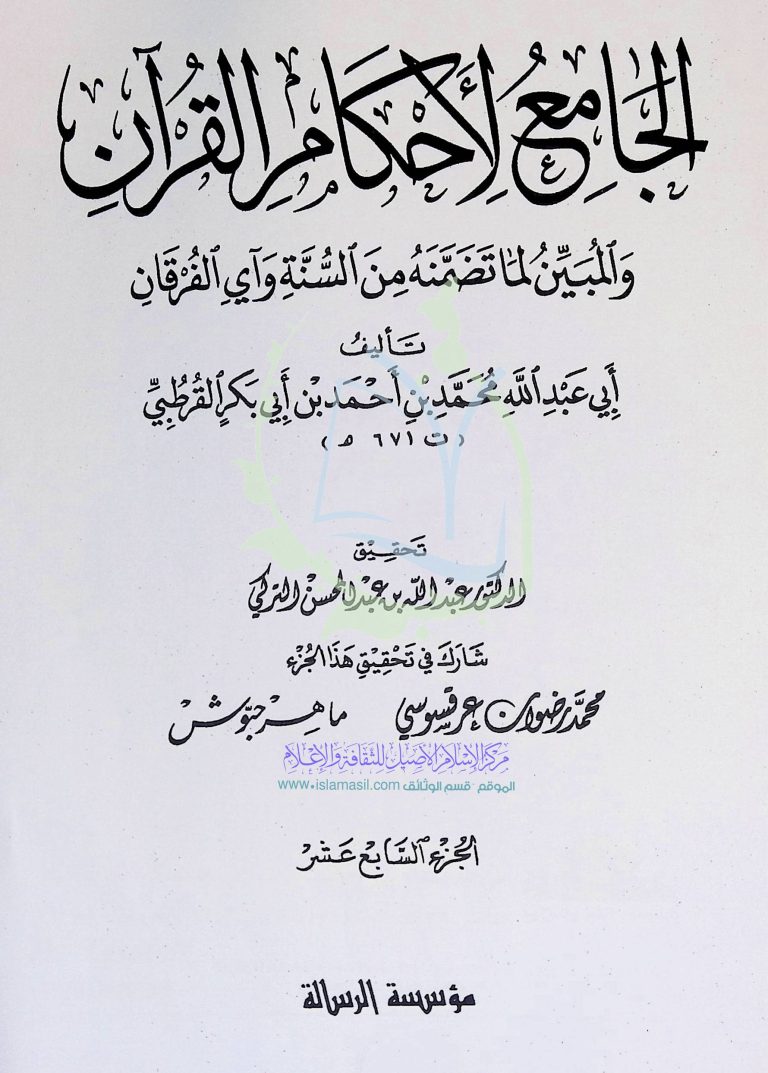 الجَامِعُ لِأَحْكَامِ القُرْآنِ
وَالمُبَيِّنُ لِمَا تَضَمَّنَهُ مِنَ السُّنَّةِ وَآيِ الفُرْقَانِ
تَأليفُ
أَبِي عَبْدِ اللَّهِ مُحَمَّدِ بْنِ أَحْمَدَ بْنِ أَبِي بَكْرٍ القُرْطُبِيِّ
(ت ٦٧١ ه)
تَحقِيْق
الدكتور عبد الله بن عبد المحسن التركي
شَارَكَ فِي تَحْقِيْقِ هَذَا الجُزْء
محمَّد رضوان عرقسوسي ماهر حبّوش
مركز الإسلام الأصيل للثقافة والإعلام
الموقع - قسم الوثائق www.islamasil.com
الجُزْء السَّابع عَشَر
مؤسسة الرسالة